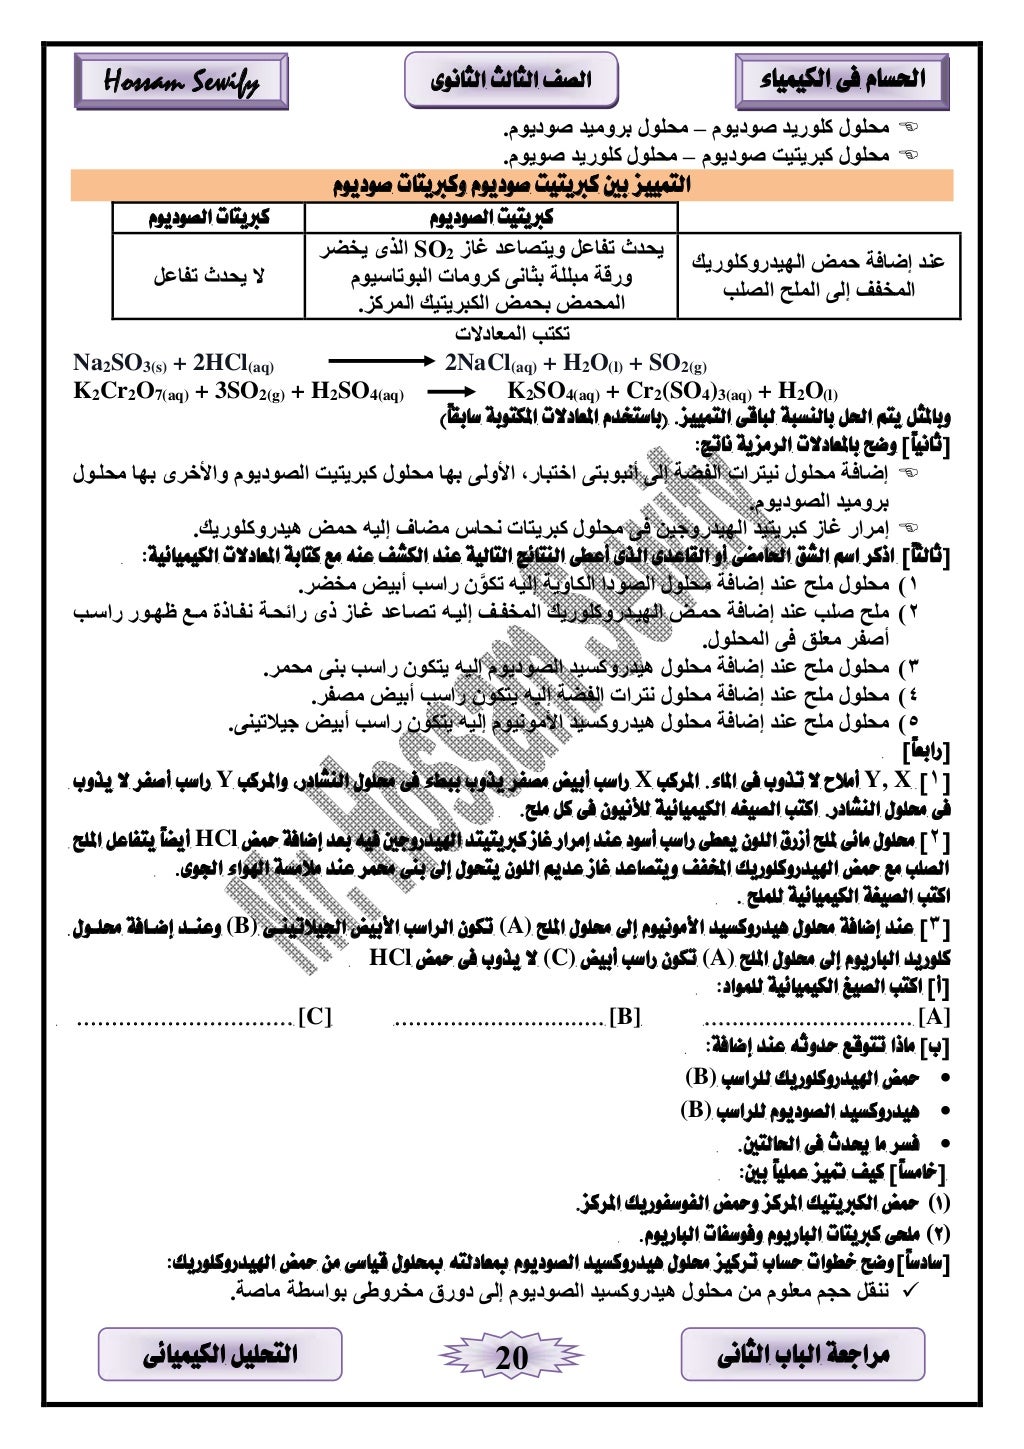 الحسام فى الكيمياء
الصف الثالث الثانوى
Hossam Sewify
محلول كلوريد صوديوم – محلول بروميد صوديوم.
محلول كبريتيت صوديوم – محلول كلوريد صويوم.
التمييز بين كبريتيت صوديوم وكبريتات صوديوم
كبريتيت الصوديوم
كبريتات الصوديوم
عند إضافة حمض الهيدروكلوريك
المخفف إلى الملح الصلب
يحدث تفاعل ويتصاعد غاز SO2 الذى يخضر
ورقة مبللة بثانى كرومات البوتاسيوم
المحمض بحمض الكبريتيك المركز.
لا يحدث تفاعل
تكتب المعادلات
Na2SO3(s) + 2HCl(aq) → 2NaCl(aq) + H2O(l) + SO2(g)
K2Cr2O7(aq) + 3SO2(g) + H2SO4(aq) → K2SO4(aq) + Cr2(SO4)3(aq) + H2O(l)
وبالمثل يتم الحل بالنسبة لباقى التمييز. (باستخدم المعادلات المكتوبة سابقاً)
[ثانياً] وضح بالمعادلات الرمزية ناتج:
إضافة محلول نيترات الفضة إلى أنبوبتى اختبار، الأولى بها محلول كبريتيت الصوديوم والأخرى بها محلول
بروميد الصوديوم.
إمرار غاز كبريتيد الهيدروجين فى محلول كبريتات نحاس مضاف إليه حمض هيدروكلوريك.
[ثالثاً] اذكر اسم الشق الحامضى أو القاعدى الذى أعطى النتائج التالية عند الكشف عنه مع كتابة المعادلات الكيميائية:
١) محلول ملح عند إضافة محلول الصودا الكاوية إليه تكوَّن راسب أبيض مخضر.
٢) ملح صلب عند إضافة حمض الهيدروكلوريك المخفف إليه تصاعد غاز ذى رائحة نفاذة مع ظهور راسب
أصفر معلق فى المحلول.
٣) محلول ملح عند إضافة محلول هيدروكسيد الصوديوم إليه يتكون راسب بنى محمر.
٤) محلول ملح عند إضافة محلول نترات الفضة إليه يتكون راسب أبيض مصفر.
٥) محلول ملح عند إضافة محلول هيدروكسيد الأمونيوم إليه يتكون راسب أبيض جيلاتينى.
[رابعاً]
[١] Y, X أملاح لا تذوب فى الماء. المركب X راسب أبيض مصفر يذوب ببطء فى محلول النشادر، والمركب Y راسب أصفر لا يذوب
فى محلول النشادر. اكتب الصيغه الكيميائية للأنيون فى كل ملح.
[٢] محلول مائى لملح أزرق اللون يعطى راسب أسود عند إمرار غاز كبريتيتد الهيدروجين فيه بعد إضافة حمض HCl أيضاً يتفاعل الملح
الصلب مع حمض الهيدروكلوريك المخفف ويتصاعد غاز عديم اللون يتحول إلى بنى محمر عند ملامسة الهواء الجوى.
اكتب الصيغة الكيميائية للملح .
[٣] عند إضافة محلول هيدروكسيد الأمونيوم إلى محلول الملح (A) تكون الراسب الأبيض الجيلاتينى (B) وعند إضافة محلول
كلوريد الباريوم إلى محلول الملح (A) تكون راسب أبيض (C) لا يذوب فى حمض HCl
[أ] اكتب الصيغ الكيميائية للمواد:
[A] .............................. [B] .............................. [C] ..............................
[ب] ماذا تتوقع حدوثه عند إضافة:
• حمض الهيدروكلوريك للراسب (B)
• هيدروكسيد الصوديوم للراسب (B)
• فسر ما يحدث فى الحالتين.
[خامساً] كيف تميز عملياً بين:
(١) حمض الكبريتيك المركز وحمض الفوسفوريك المركز.
(٢) ملحى كبريتات الباريوم وفوسفات الباريوم.
[سادساً] وضح خطوات حساب تركيز محلول هيدروكسيد الصوديوم بمعادلته بمحلول قياسى من حمض الهيدروكلوريك:
✓ ننقل حجم معلوم من محلول هيدروكسيد الصوديوم إلى دورق مخروطى بواسطة ماصة.
Mr. Hossam Sewify
مراجعة الباب الثانى
20
التحليل الكيميائى